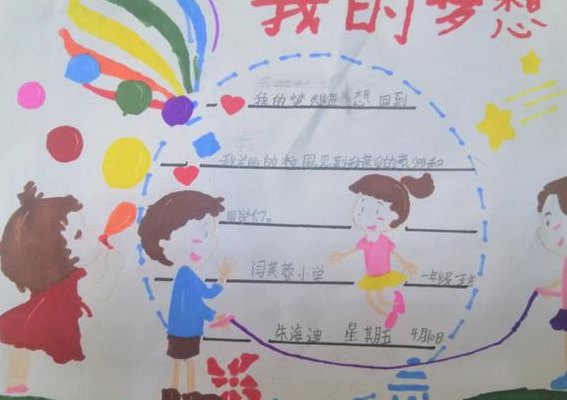 我的梦想
我的梦想 想回到
我 的校园见到我亲爱的老师和
们。
闫芙蓉小学 一年级
朱海迪 星期五 4月10日